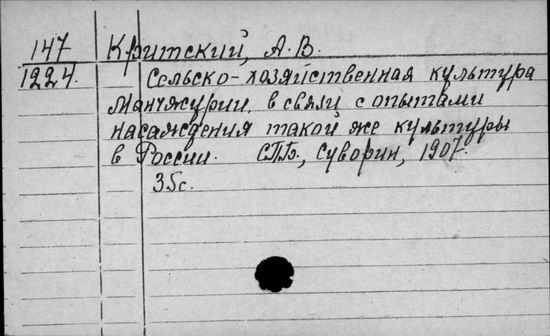 147
1224.
Критский, А. В.
Сельско-хозяйственная культура
Манчжурии, в связи с опытами
насаждения такой же культуры
в России. СПБ., Суворин, 1907.
35с.